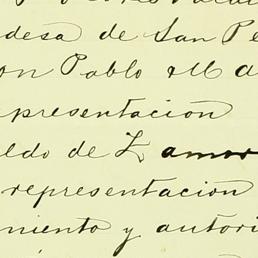 desa de San Pe
on Pablo Ma
presentacion
ldo de Zamor
representacion
miento y autori